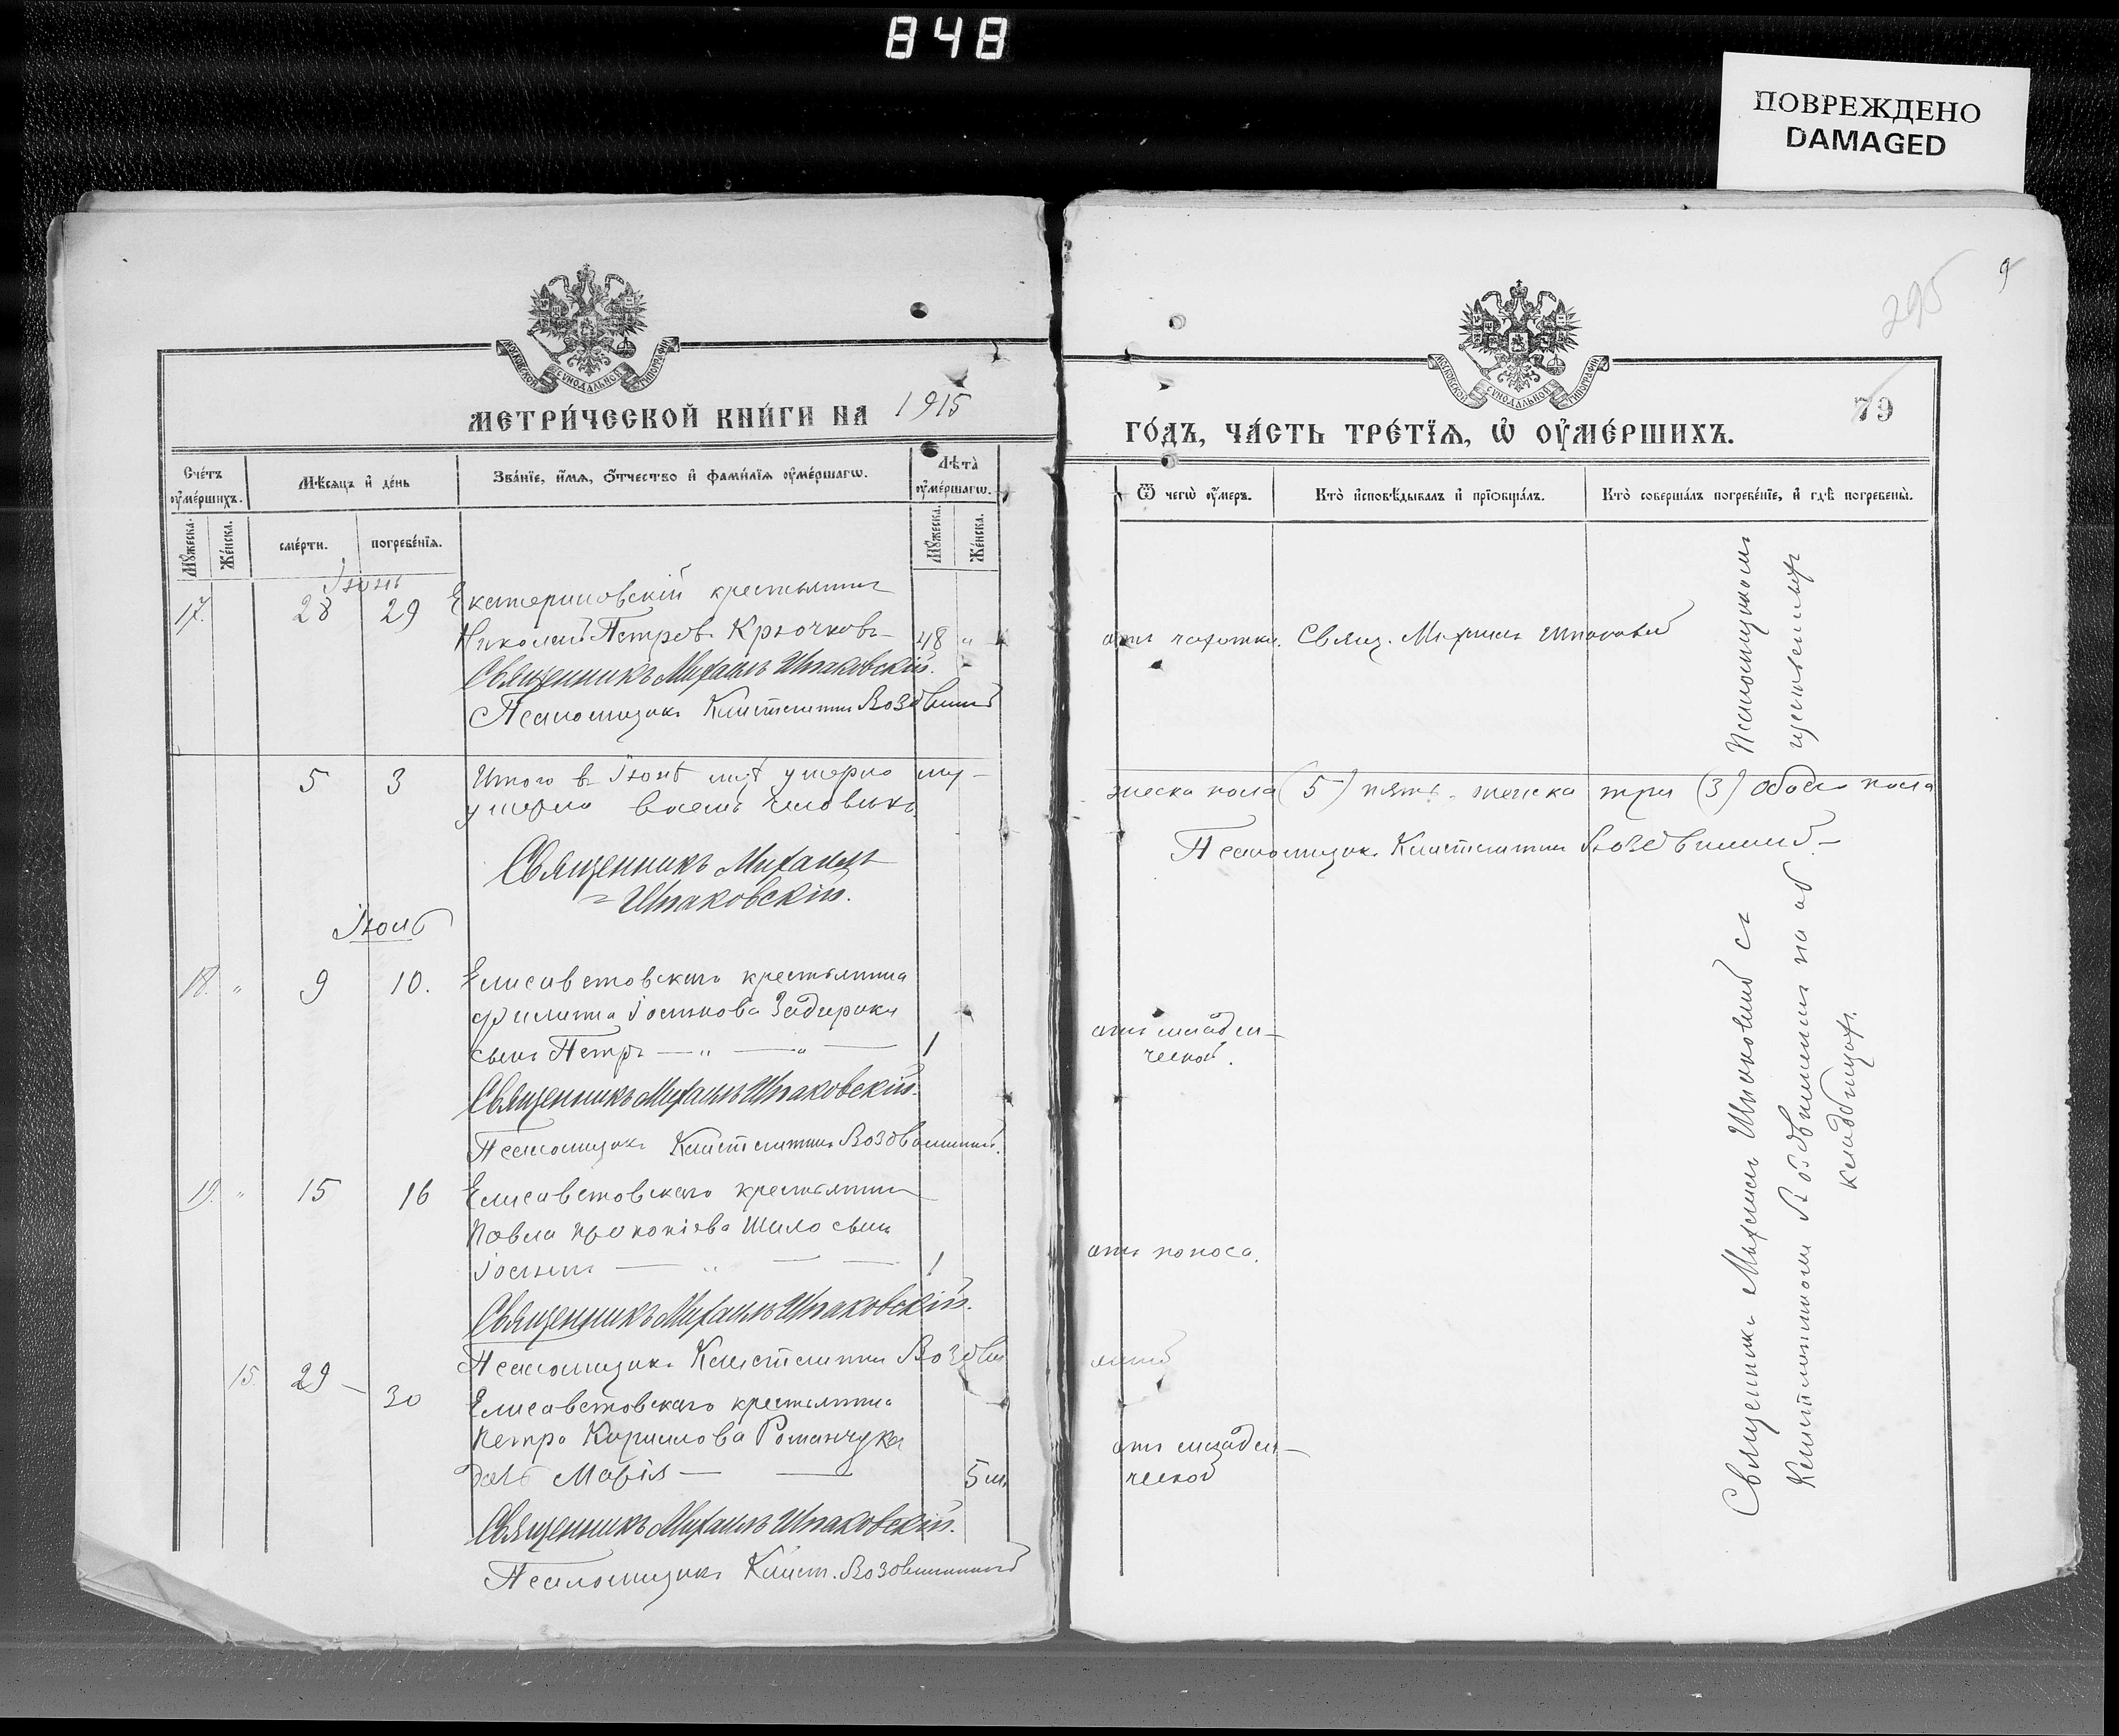 848
ПОВРЕЖДЕНО
DAMAGED
МОСКОВСКОЙ СУНОДАЛЬНОЙ ТИПОГРАФІИ
МЕТРИ́ЧЕСКОЙ КНИ́ГИ НА 1915
Сче́тъ ᲂу҆ме́ршихъ.
Мѣ́сяцъ и҆ де́нь
Зва́нїе, и҆́мѧ, ѻ҆́тчество и҆ фами́лїѧ ᲂу҆ме́ршагѡ.
Лѣта̀ ᲂу҆ме́ршагѡ.
Мꙋ́жеска.
Же́нска.
сме́рти.
погребе́нїѧ.
Мꙋ́жеска.
Же́нска.
Іюнь
17. 28 29 Екатериновскій крестьянинъ
Николай Петровъ Крючковъ 48 "
Священникъ Михаилъ Шпаковскій.
Псаломщикъ Константинъ Воздвиж
5 3 Итого въ Іюнѣ умерло му-
умерло восемь человѣкъ.
Священникъ Михаилъ
Шпаковскій.
Іюль
18. " 9 10. Елисаветовскаго крестьянина
Филиппа Іосифова Задираки
сынъ Петръ — " — " — 1
Священникъ Михаилъ Шпаковскій.
Псаломщикъ Константинъ Воздвиженскій.
19. " 15 16 Елисаветовскаго крестьянина
Павла Прокопіева Шило сынъ
Іосифъ — " — — 1
Священникъ Михаилъ Шпаковскій.
Псаломщикъ Константинъ Воздви
15. 29 — 30 Елисаветовскаго крестьянина
Петра Кириллова Романчука
дочь Марія — — 5 м.
Священникъ Михаилъ Шпаковскій.
Псаломщикъ Конст. Воздвиженскій
295
9
МОСКОВСКОЙ СУНОДАЛЬНОЙ ТИПОГРАФІИ
79
ГО́ДЪ, ЧА́СТЬ ТРЕ́ТЇѦ, Ѡ҆ ᲂУ҆МЕ́РШИХЪ.
Ѿ чегѡ̀ ᲂу҆́меръ.
Кто̀ и҆сповѣ́дывалъ и҆ прїѻбща́лъ.
Кто̀ соверша́лъ погребе́нїе, и҆ гдѣ̀ погребены̀.
отъ чахотки. Свящ. Михаилъ Шпаковскій
жеска пола (5) пять. женска три (3) обоего пола
Псаломщикъ Константинъ Воздвиженскій
отъ младен-
ческой.
отъ поноса.
отъ младен-
ческой
Священникъ Михаилъ Шпаковскій съ Псаломщикомъ
Константиномъ Воздвиженскимъ на об щественномъ
кладбищѣ.